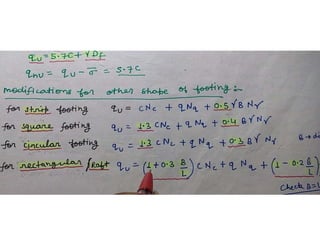 qu = 5.7C + γDf
qnu = qu - σ̄ = 5.7C
modifications for other shape of footing:-
for strip footing qu = CNc + qNq + 0.5γBNγ
for square footing qu = 1.3 CNc + qNq + 0.4 BγNγ
for circular footing qu = 1.3 CNc + qNq + 0.3 Bγ Nγ B →
for rectangular / Raft qu = (1 + 0.3 B/L) CNc + qNq + (1 - 0.2 B/L)
Check B=L